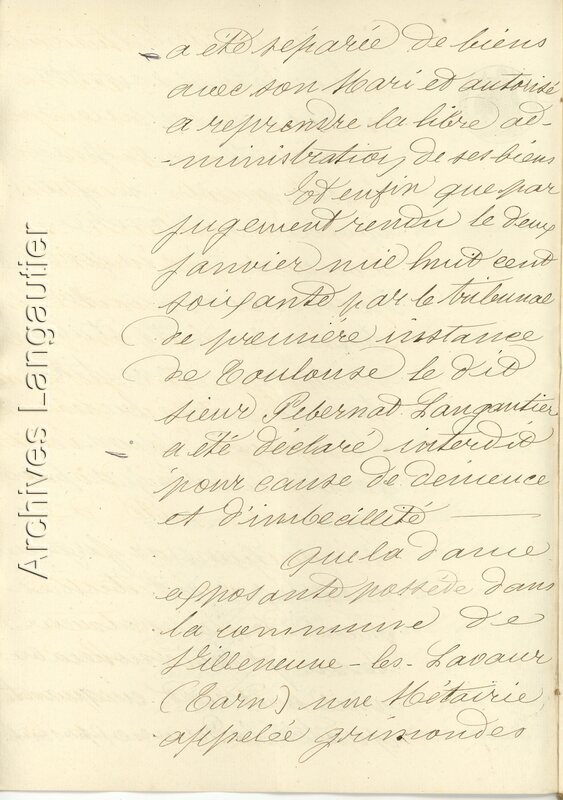 a été séparée de biens
avec son Mari et autorisé
a reprendre la libre ad-
-ministration de ses biens
Et enfin que par
jugement rendu le deux
janvier mil huit cent
soixante par le tribunal
de première instance
de Toulouse le dit
sieur Pebernat Langautier
a été déclaré interdit
pour cause de demence
et d'imbecillité —
Que la dame
exposante possède dans
la commune de
Villeneuve-les-Lavaur
(Tarn) une Métairie
appelée grimondes
Archives Langautier